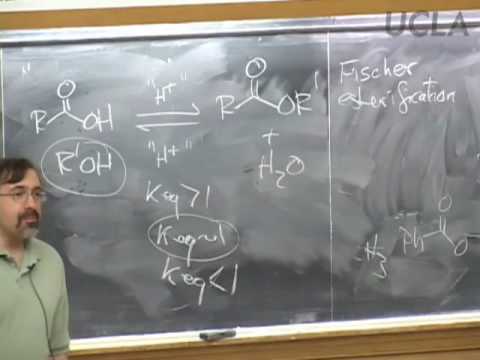 UCLA
O
R OH
"H+"
"H+"
R'OH
O
R OR'
+
H2O
Keq>1
Keq~1
Keq<1
Fischer
esterification
O
H3
Ph O